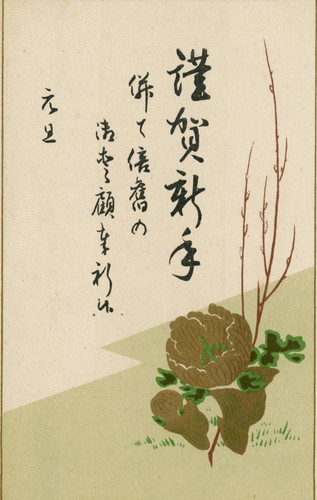 謹賀新年
併て倍舊の
御愛顧奉祈候
元旦